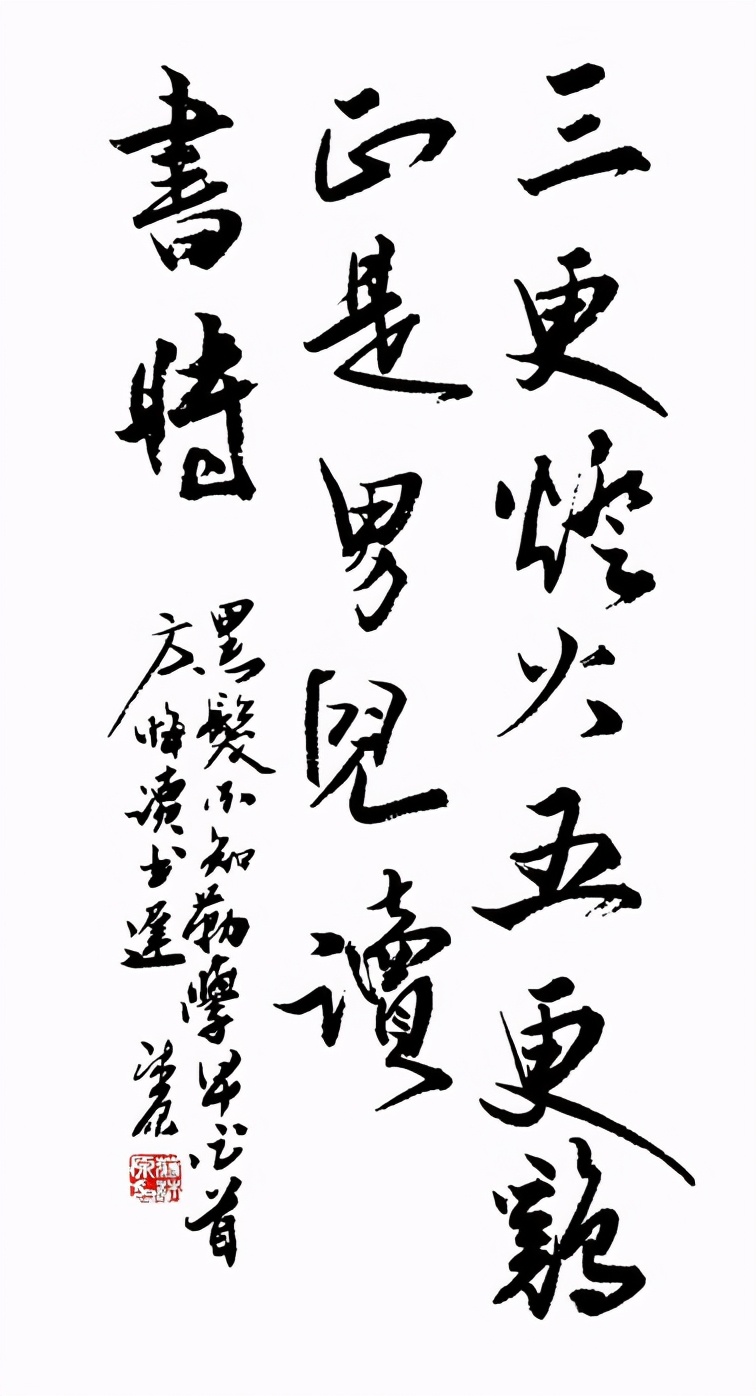 三更燈火五更鷄
正是男兒讀
書時
黑髮不知勤學早白首
方悔讀書遲